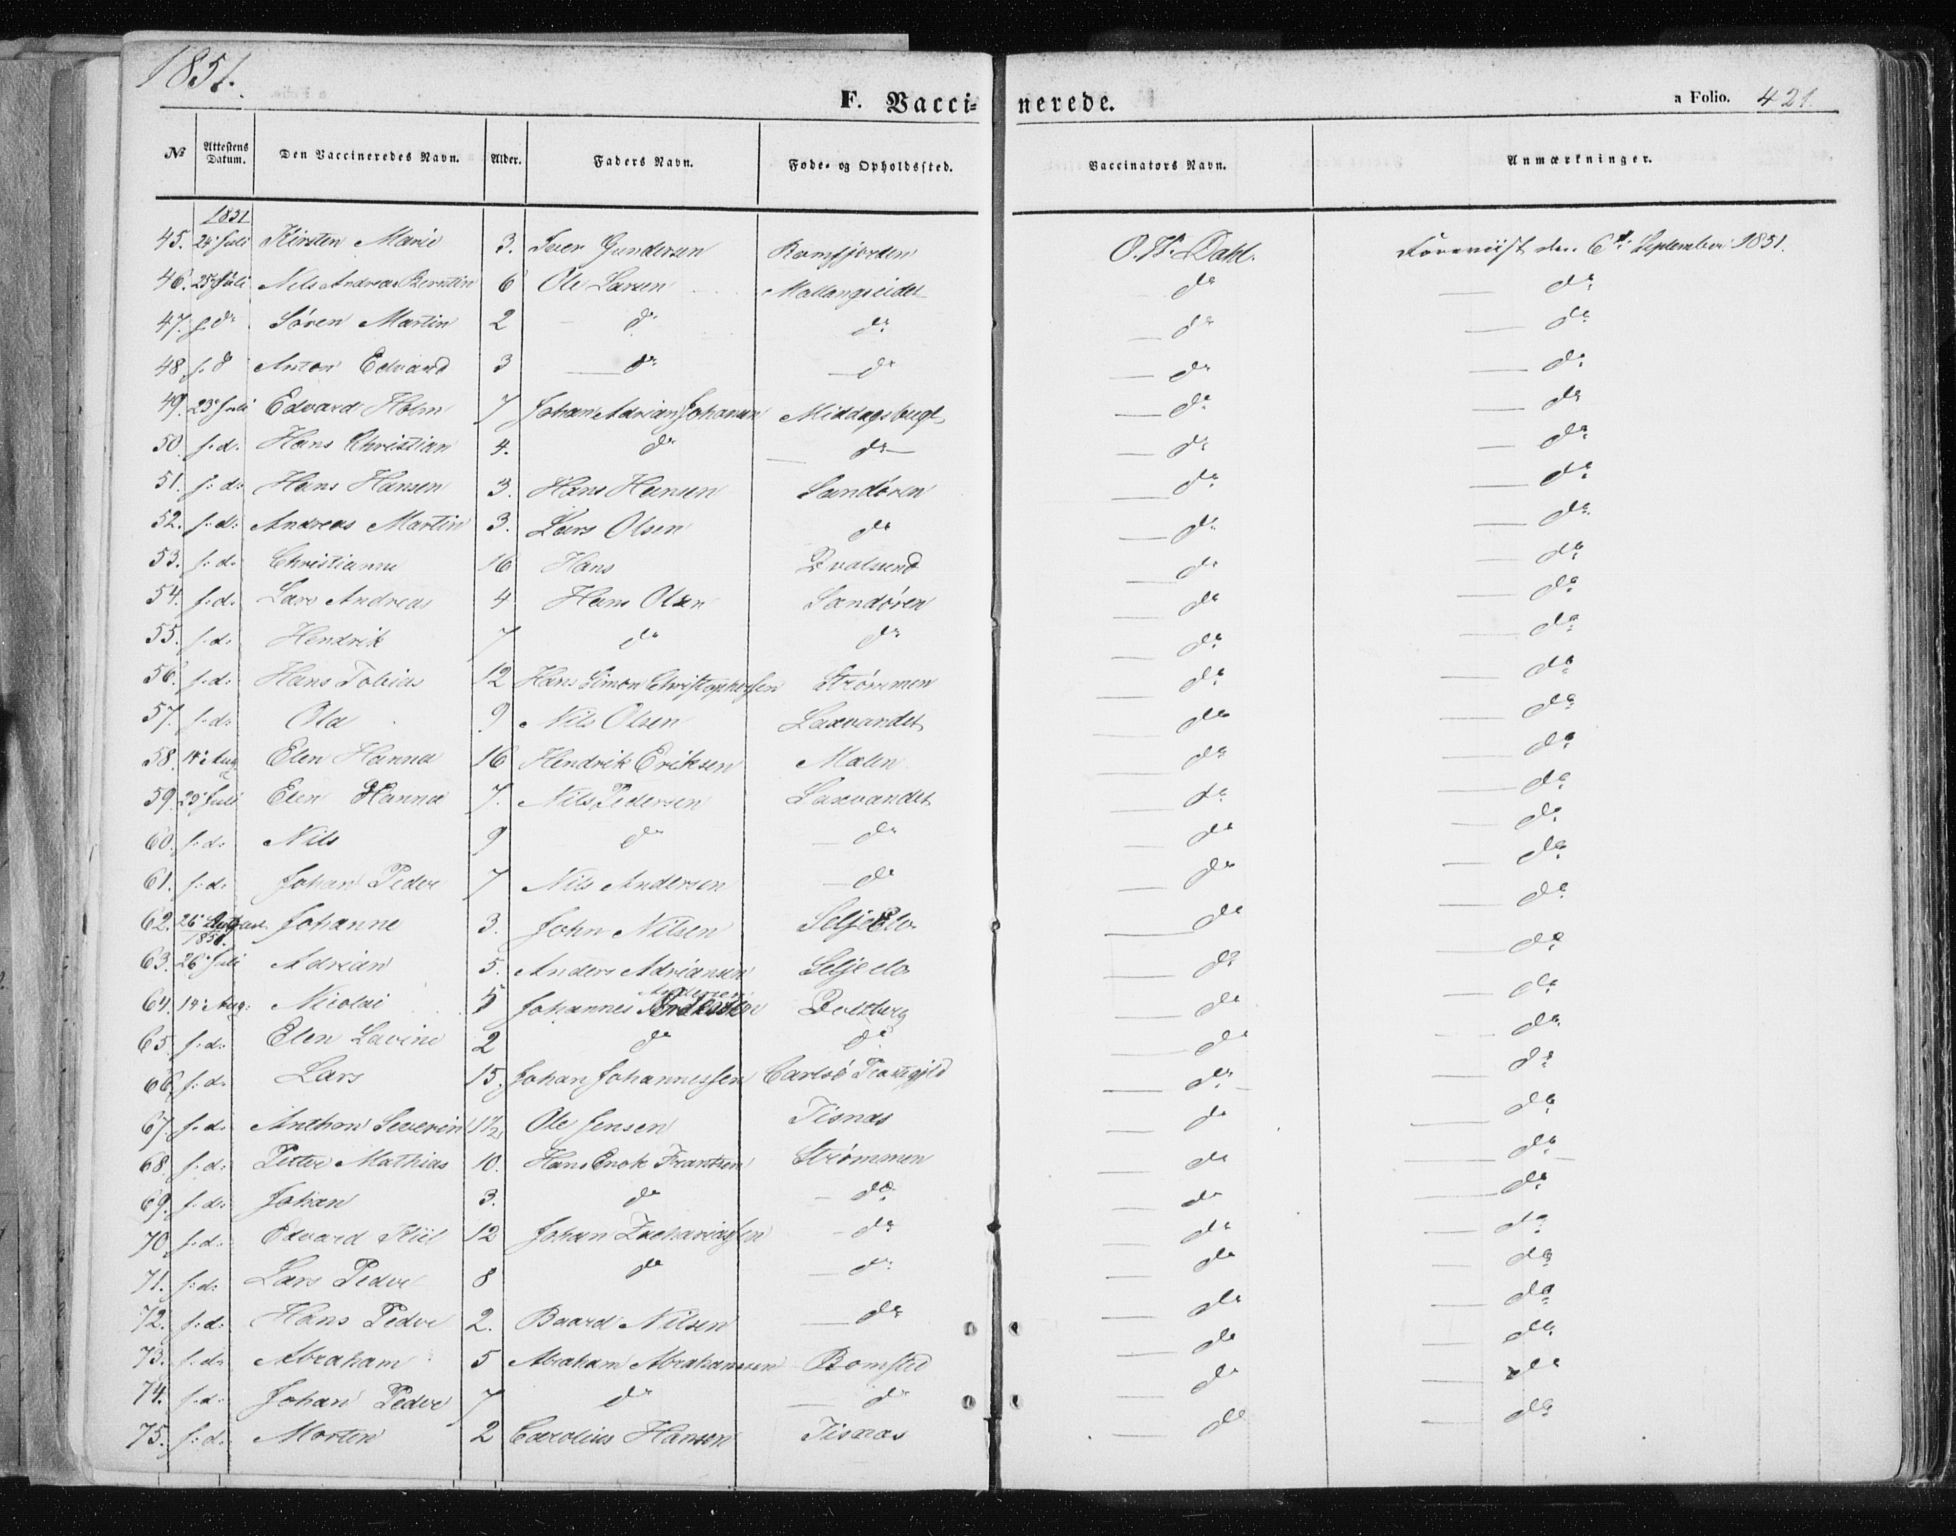 1851.
F. Vaccinerede.
a Folio. 421
No Attestens Datum. Den Vaccineredes Navn. Alder. Faders Navn. Føde- og Opholdssted. Vaccinators Navn. Anmærkninger.
1851
45. 24 Juli Kirsten Marie 3. Iver Gundersen Ramfjorden O. W. Dahl. Foreviist den 6te September 1851.
46. 25 Juli Nils Andreas 6 Ole Larsen Mallangseidet do do
47. s. d. Søren Martin 2 do do do do
48 s. d Anton Edvard 3 do do do do
49. 23 Juli Edvard Holm 7 Johan Adrian Johansen Middagsbugt do do
50. s. d. Hans Christian 4. do do do do
51. s. d. Hans Hansen 3. Hans Hansen Sandøren do do
52. s. d. Andreas Martin 3. Lars Olsen do do do
53. s. d. Christianne 16 Hans Qvalsund do do
54. s. d. Lars Andreas 4 Hans Olsen Sandøren do do
55. s. d. Hendrik 7 do do do do
56. s. d. Hans Tobias 12 Hans Simon Christophersen Strømmen do do
57. s. d. Ola 9 Nils Olsen Laxvandet do do
58. 14 Aug Elen Hanna 16 Hendrik Eriksen Malen do do
59. 23 Juli Elen Hanna 7. Nils Pedersen Laxvandet do do
60. s. d. Nils 9 do do do do
61. s. d. Johan Peder 7 Nils Andersen do do do
62. 26 August 1851. Johanne 3. John Nilsen Seljeelv do do
63. 26 Juli Adrian 5. Anders Adriansen Seljeelv do do
64. 14 Aug: Nicolai 5 Johannes Andersen do do
65. s. d. Elen Lavine 2 do do do do
66. s. d. Lars 15. Johan Johannessen Carlsø Præstegjeld do do
67. s. d. Anthon Severin 1 1/2 Ole Jensen Tisnæs do do
68. s. d. Petter Mathias 10. Hans Enok Frantsen Strømmen do do
69. s. d. Johan 3. do do do do
70. s. d. Edvard Kiil 12 Johan Zachariassen do do do
71. s. d. Lars Peder 8 do do do do
72. s. d. Hans Peder 2. Baard Nilsen do do do
73. s. d. Abraham 5 Abraham Abrahamsen Bomstad do do
74. s. d. Johan Peder 7 do do do do
75. s. d. Morten 2 Carolius Hanson Tisnæs do do